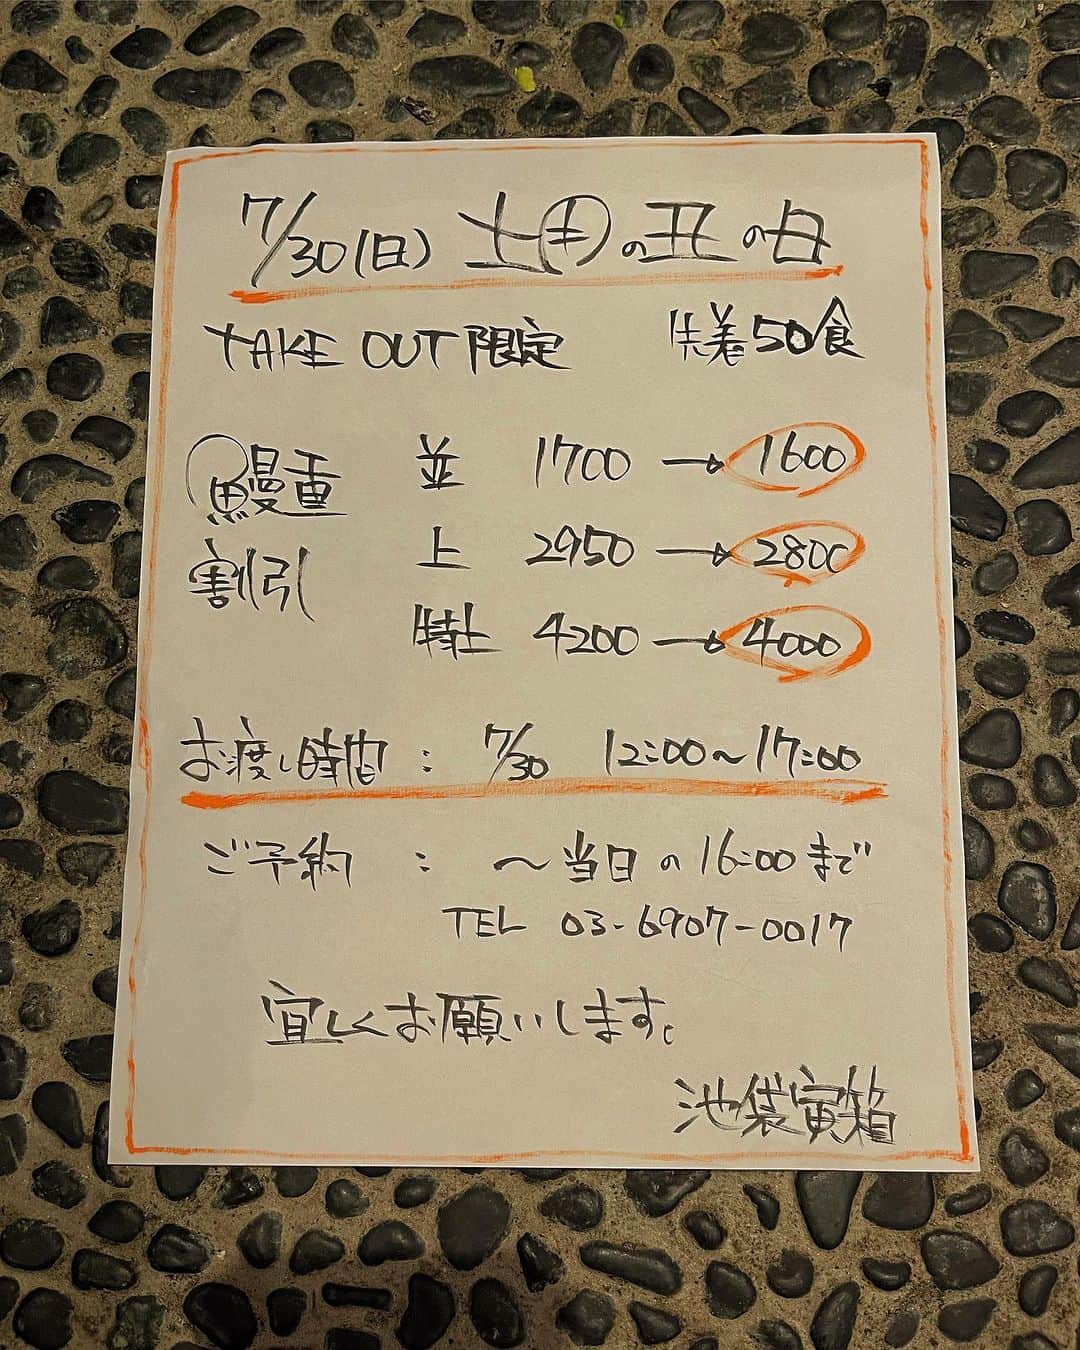 7/30(日) 土用の丑の日
TAKE OUT 限定 先着50食
鰻重 並 1700 → 1600
割引 上 2950 → 2800
特上 4200 → 4000
お渡し時間 : 7/30 12:00〜17:00
ご予約 : 〜当日の16:00まで
TEL 03-6907-0017
宜しくお願いします。
池袋寅箱